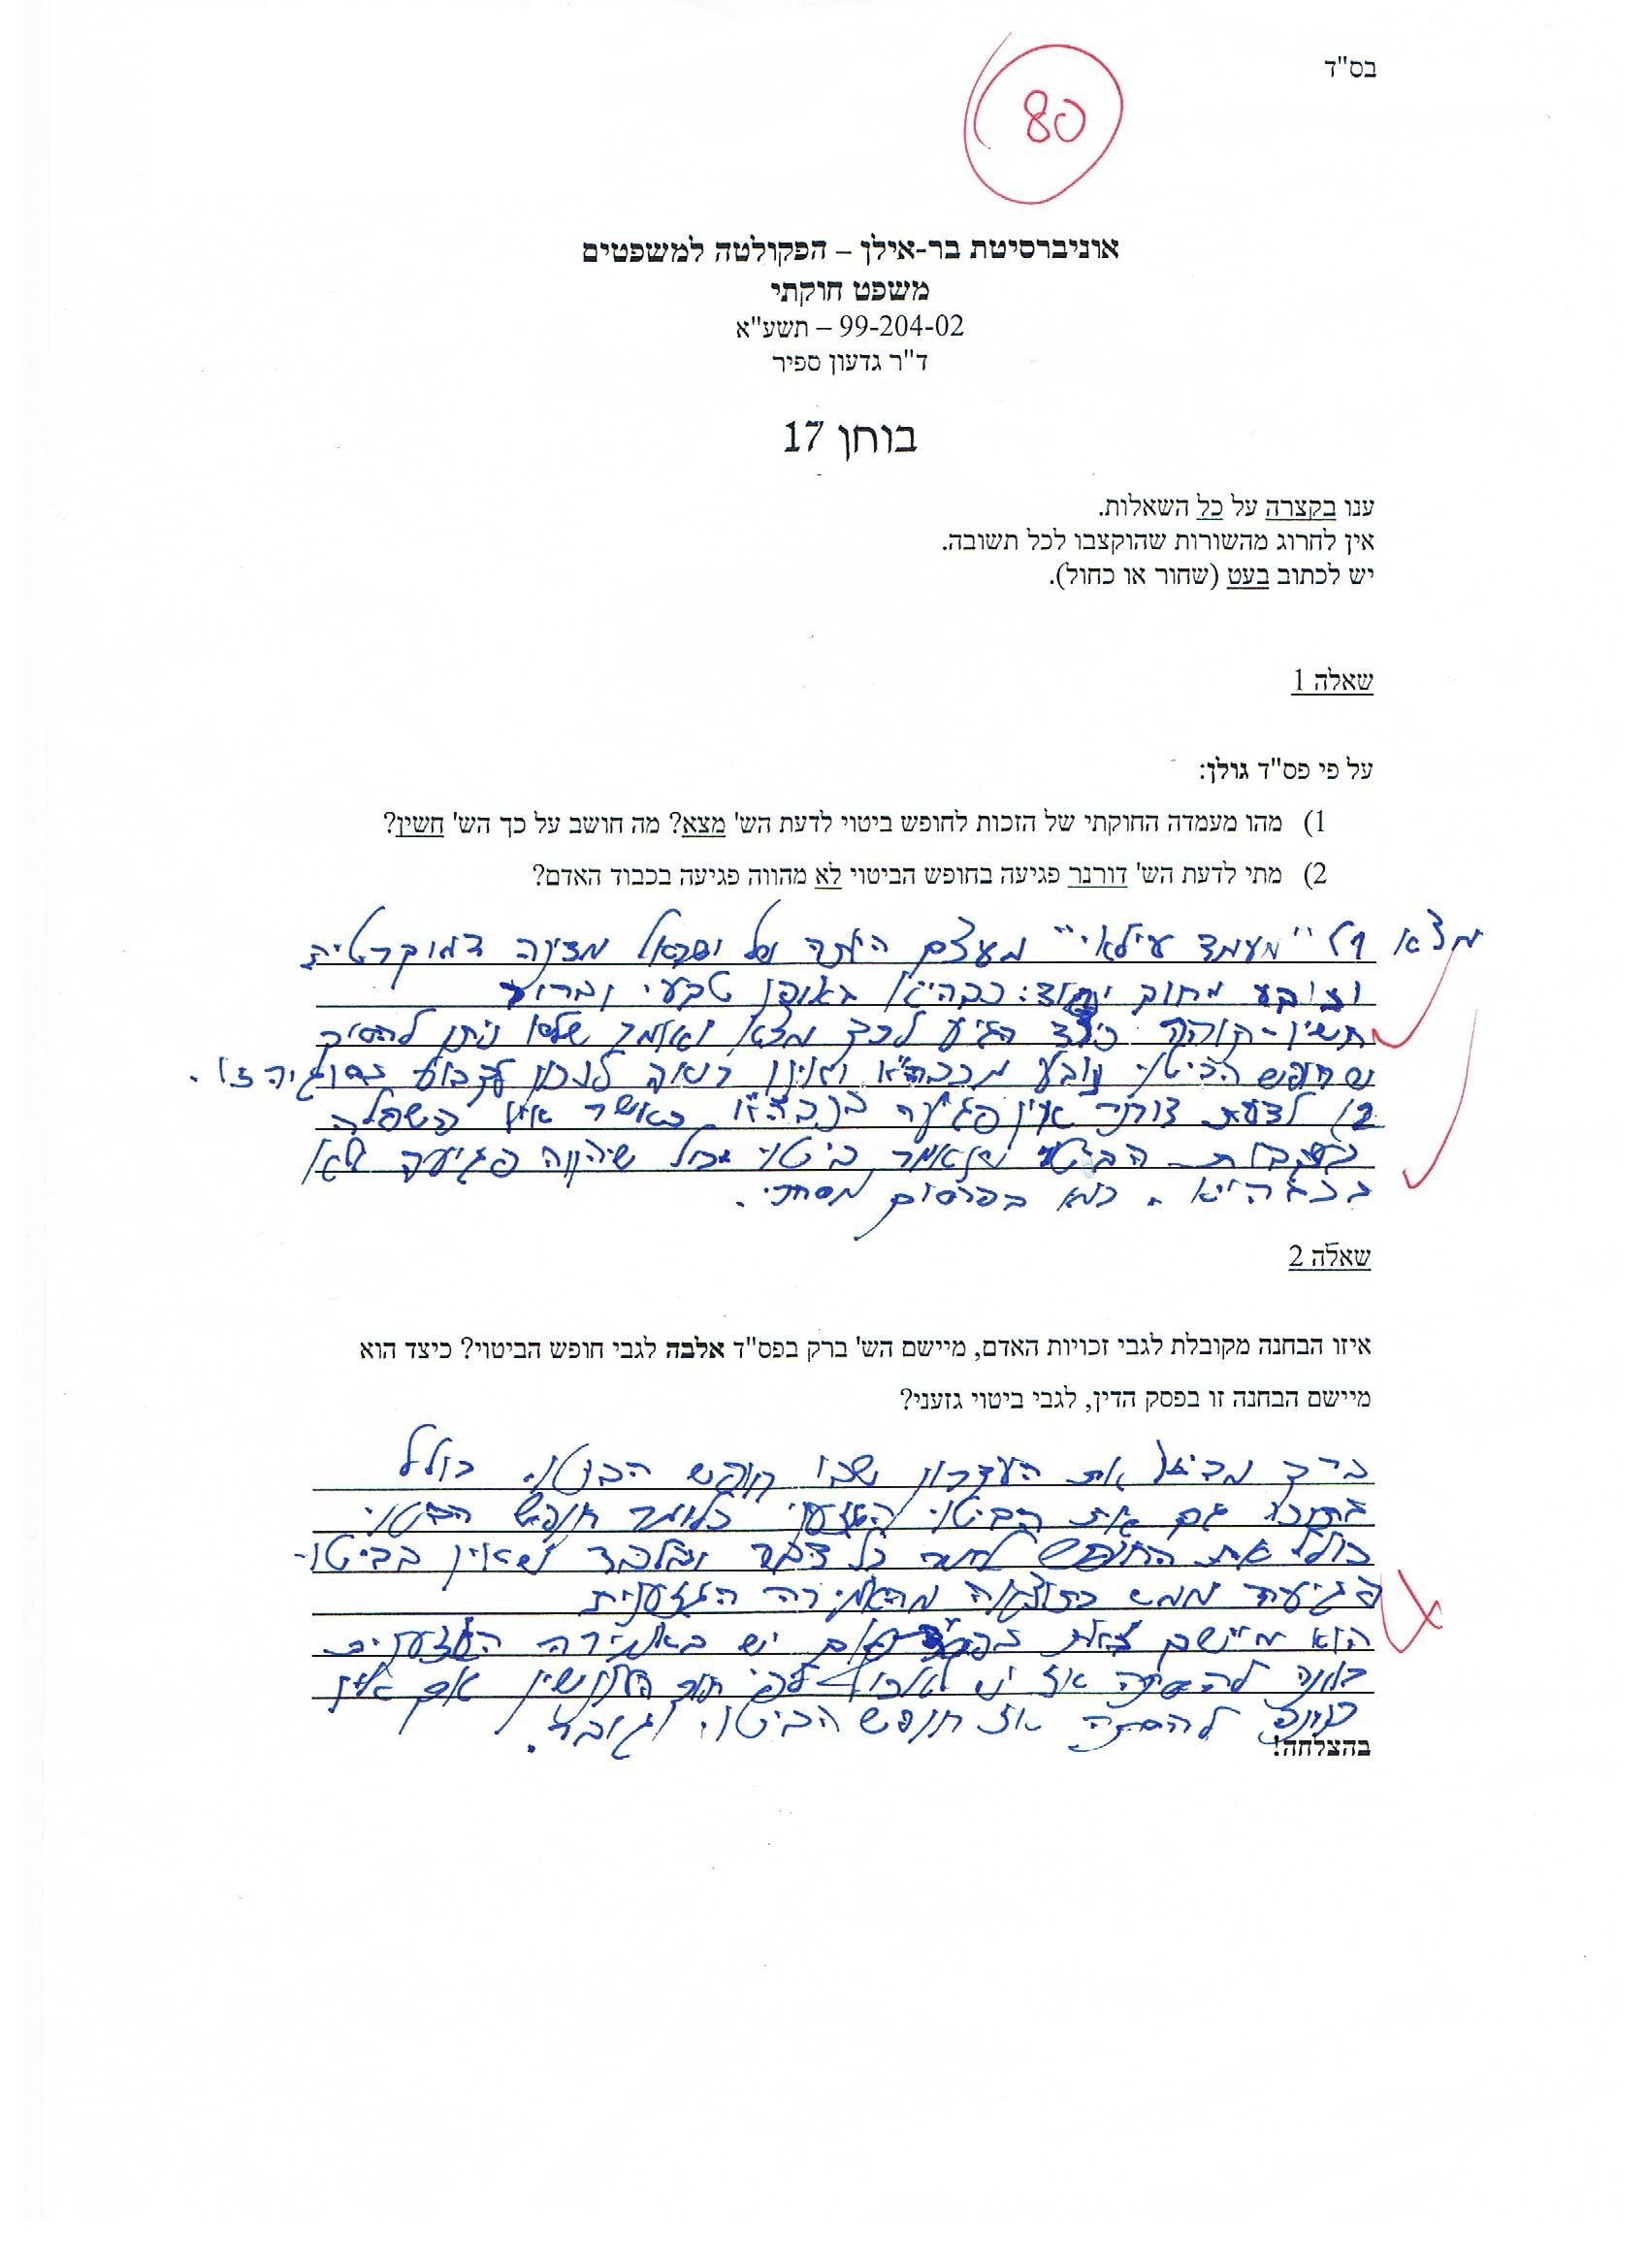 בס"ד
80
אוניברסיטת בר-אילן – הפקולטה למשפטים
משפט חוקתי
99-204-02 – תשע"א
ד"ר גדעון ספיר
בוחן 17
ענו בקצרה על כל השאלות.
אין לחרוג מהשורות שהוקצבו לכל תשובה.
יש לכתוב בעט (שחור או כחול).
שאלה 1
על פי פס"ד גולן:
1) מהו מעמדה החוקתי של הזכות לחופש ביטוי לדעת הש' מצא? מה חושב על כך הש' חשין?
2) מתי לדעת הש' דורנר פגיעה בחופש הביטוי לא מהווה פגיעה בכבוד האדם?
מצא 1) "מעמד עילאי" מעצם היותה של ישראל מדינה דמוקרטית
ונובע מחוק יסוד: כבהא"ו באופן טבעי וברור
חשין - תוהה כיצד הגיע לכך מצא ואומר שלא ניתן להסיק
שחופש הביטוי נובע מכבהא"ו ואינו רואה לנכון לקבוע בסוגיה זו.
2) לדעת דורנר אין פגיעה בכבהא"ו כאשר אין השפלה
בעקבות הביטוי שנאמר ביטוי יכול שיהווה פגיעה ולא
בכבהא"ו. כמו בפרסום מסחרי.
שאלה 2
איזו הבחנה מקובלת לגבי זכויות האדם, מיישם הש' ברק בפס"ד אלבה לגבי חופש הביטוי? כיצד הוא
מיישם הבחנה זו בפסק הדין, לגבי ביטוי גזעני?
ברק מביא את העקרון שבו חופש הביטוי כולל
בתוכו גם את הביטוי הגזעני כלומר חופש הביטוי
כולל את החופש לומר כל דבר ובלבד שאין בביטוי
פגיעה ממש כתוצאה מהאמירה הגזענית
הוא מיישם זאת אם יש באמירה הגזענית
כוונה להסתה אז יש לפי חוק העונשין אם אין
כוונה להסתה אז חופש הביטוי גובר.
בהצלחה!